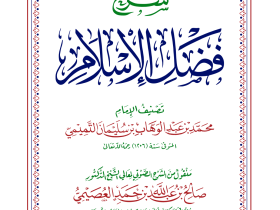 شرح
فضل الإسلام
تصنيف الإمام
محمد بن عبد الوهاب بن سليمان التميمي
المتوفى سنة (١٢٠٦) رحمه الله تعالى
منقول من الشرح الصوتي لمعالي الشيخ الدكتور
صالح بن عبد الله بن حمد العصيمي